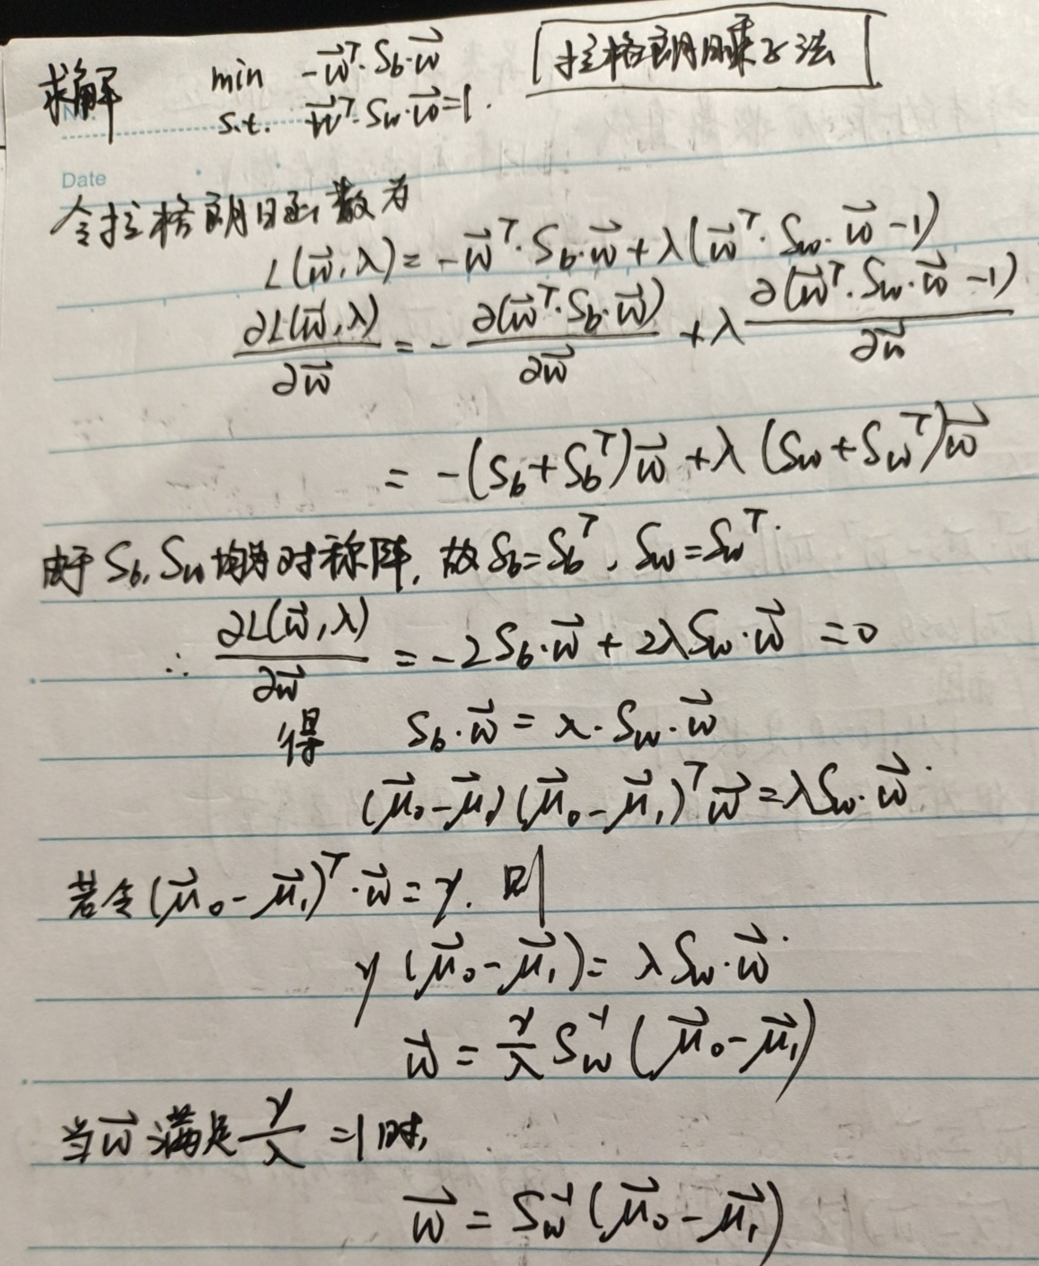 求解 min -w⃗ᵀ·S_b·w⃗ [拉格朗日乘子法]
s.t. w⃗ᵀ·S_w·w⃗=1.
Date
令拉格朗日函数为
L(w⃗,λ)=-w⃗ᵀ·S_b·w⃗+λ(w⃗ᵀ·S_w·w⃗-1)
∂L(w⃗,λ)/∂w⃗ = -∂(w⃗ᵀ·S_b·w⃗)/∂w⃗ +λ ∂(w⃗ᵀ·S_w·w⃗-1)/∂w⃗
= -(S_b+S_bᵀ)w⃗+λ(S_w+S_wᵀ)w⃗
由于S_b,S_w均为对称阵,故S_b=S_bᵀ,S_w=S_wᵀ.
∴ ∂L(w⃗,λ)/∂w⃗ = -2S_b·w⃗+2λS_w·w⃗ =0
得 S_b·w⃗=λ·S_w·w⃗
(μ⃗₀-μ⃗₁)(μ⃗₀-μ⃗₁)ᵀw⃗=λS_w·w⃗.
若令(μ⃗₀-μ⃗₁)ᵀ·w⃗=γ.则
γ(μ⃗₀-μ⃗₁)=λS_w·w⃗.
w⃗=γ/λ S_w⁻¹(μ⃗₀-μ⃗₁)
当w⃗满足γ/λ=1时,
w⃗=S_w⁻¹(μ⃗₀-μ⃗₁)